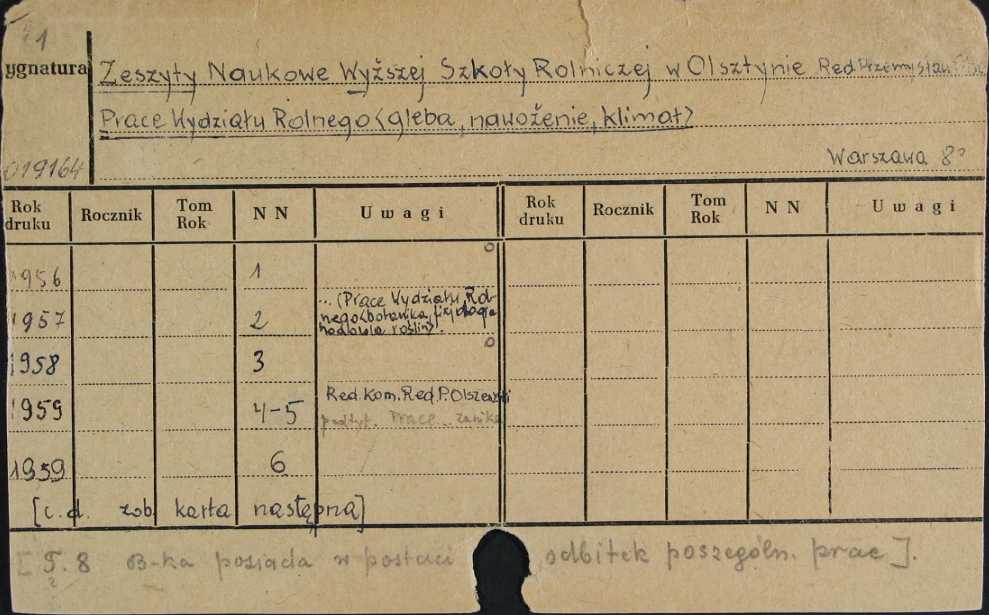 1
ygnatura Zeszyty Naukowe Wyższej Szkoły Rolniczej w Olsztynie Red. Przemysław
Prace Wydziału Rolnego <gleba, nawożenie, klimat>
019164 Warszawa 8°
Rok druku Rocznik Tom Rok NN Uwagi Rok druku Rocznik Tom Rok NN Uwagi
1956 1
1957 2 ... (Prace Wydziału Rol-
nego <botanika, fizjologia
hodowla roślin>.
1958 3
1959 4-5 Red. Kom. Red. P. Olszewski
podtyt. Prace... zanika
1959 6
[c.d. zob. karta następna]
[T. 8 B-ka posiada w postaci odbitek poszególn. prac].